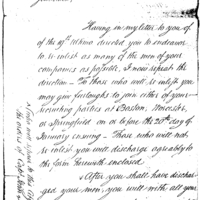 Having in my letter to you of
of the 9th Ultimo directed you to endeavor
to re inlist as many of the men of your
companies as possible, I now repeat the
direction — To those who will re inlist you
may give furloughs to join either of your
recruiting parties at Boston, Worcester,
or Springfield on or before the 20th day of
January ensuing — Those who will not
re inlist you will discharge agreeably to
the form herewith enclosed
After you shall have dischar
ged your men, you will with all your